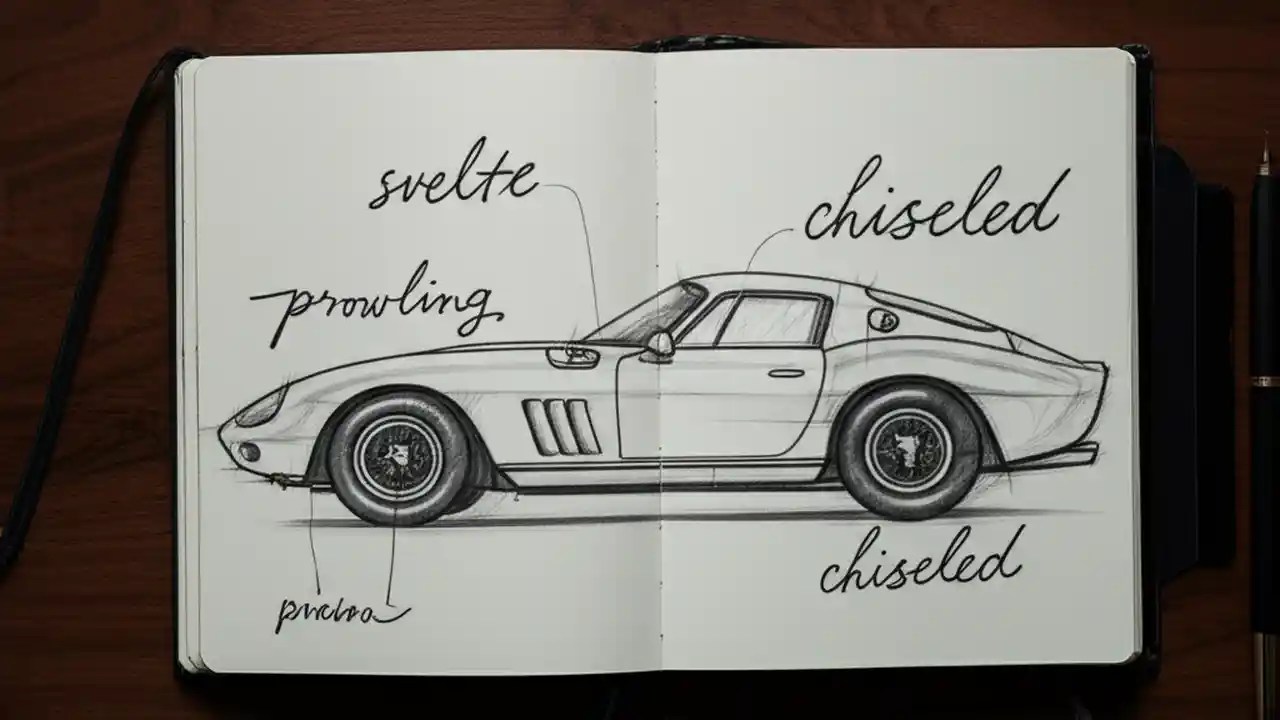 svelte
chiseled
prowling
chiseled